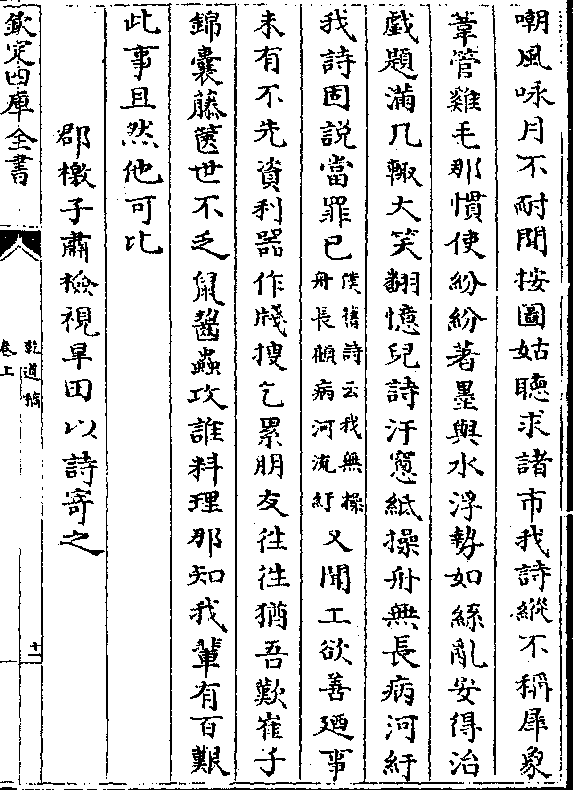 嘲風咏月不耐聞按圖姑聽求諸市我詩縱不稱犀象
葦管雞毛那慣使紛紛著墨與水浮勢如絲亂安得治
戲題滿几輙大笑翻憶兒詩汗窻紙操舟無長病河紆
我詩固説當罪已僕舊詩云我無操舟長頗病河流紆又聞工欲善廼事
未有不先資利器作牋搜乞累朋友徃徃猶吾歎崔子
錦囊藤篋世不乏鼠齧蟲攻誰料理那知我輩有百艱
此事且然他可比
郡檄子肅檢視旱田以詩寄之
欽定四庫全書
乾道稿
卷上
十一